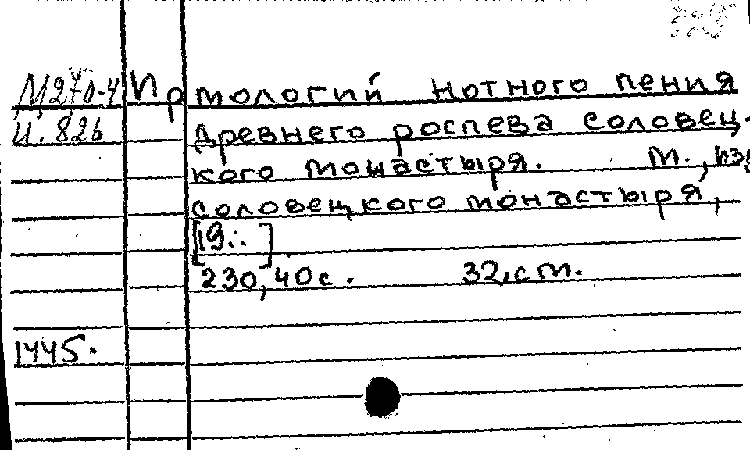 М270-4 Ирмологий нотного пения
И.826 древнего роспева соловец-
кого монастыря. М., из.
соловецкого монастыря,
[19..]
230, 40с. 32,см.
1445.